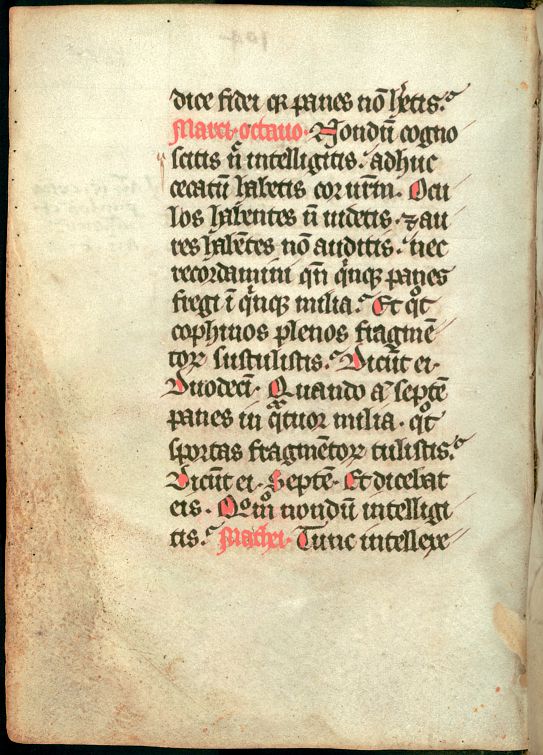 dice fidei qꝛ panes nō hētis.
Marci·octauo· Nondū cogno
scitis n̄ intelligitis. adhuc
cecatū habetis cor ur̄m. Ocu
los habentes n̄ uidetis. ⁊ au
res habētes nō auditis. nec
recordamini qn̄ qͥnqꝫ panes
fregi ī qͥnqꝫ milia. Et qͦt
cophinos plenos fragmē
toꝝ sustulistis. Dicūt ei·
Duodecī. Quando ⁊ septē
panes in qᷓtuor milia. qͦt
sportas fragmētoꝝ tulistis.
Dicūt ei. Septē. Et dicebat
eis. Qͦm̄ nondū intelligi
tis. Mathei· Tunc intellexe